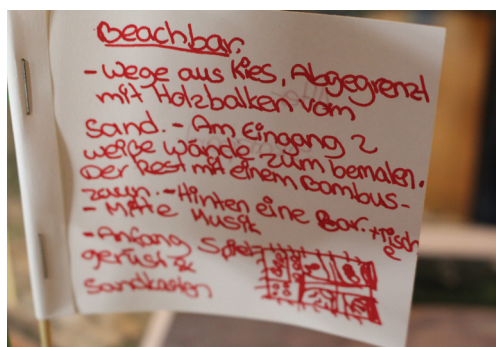 Beachbar.
- Wege aus Kies, Abgegrenzt
mit Holzbalken vom
Sand. - Am Eingang 2
weiße Wände zum bemalen.
Der Rest mit einem Bambus-
zaun. - Hinten eine Bar. + Tisch
e
- Mitte Musik
- Anfang Spiel
gerüst &
Sandkasten